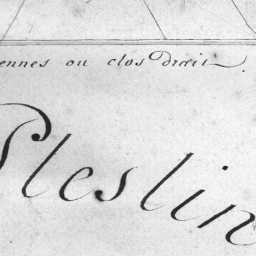 ennes ou clos Drait
Pleslin